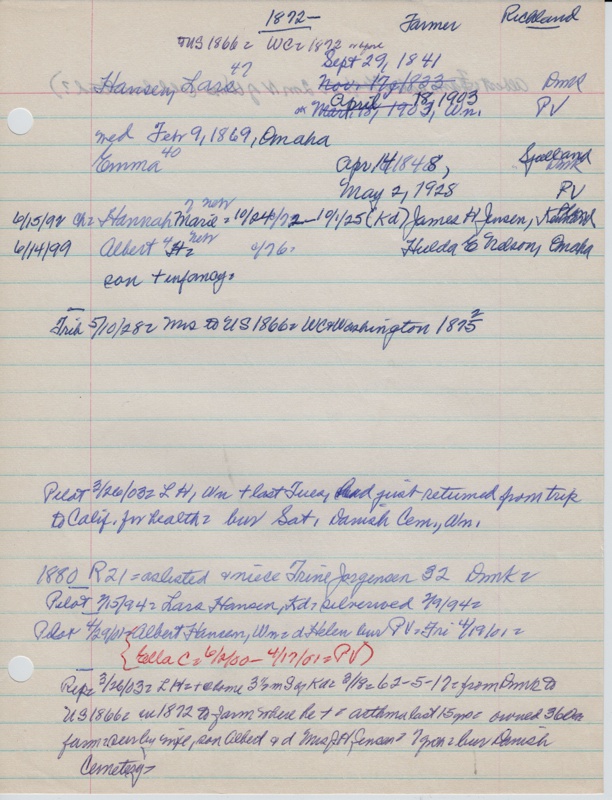 1872 – Farmer Richland
TUS 1866 = WC = 1872
Sept 29, 1841
Hansen, Lars 47 Nov. 17, 1822 Dmk
April 18, 1903
or Mar. 18, 1903, Wn. PV
md Febr 9, 1869, Omaha
Emma 40 Apr 14 1848, Sjaelland Dmk
May 2, 1928 PV
6/15/92 Ch = Hannah Marie 7 new = 10/24/72 – 10/1/25 (Kd) James H. Jensen,
6/14/99 Albert 4 H = new 6/76 = Hulda E Nelson, Omaha
son + infancy =
Trib 5/10/28 = Mrs to US 1866 = WC + Washington 1875 2
Pilot 3/26/03 = L H, Wn + last Tues, had just returned from trip
to Calif. for health = bur Sat, Danish Cem., Wn.
1880 R21 = as listed + niece Trine Jorgensen 32 Dmk =
Pilot 2/15/94 = Lars Hansen, Kd = silverwed 2/9/94 =
Pilot 4/29/01 = Albert Hansen, Wn = d Helen bur PV = Fri 4/19/01 =
{ Ella C = 6/2/00 – 4/17/01 = PV }
Rep = 3/26/03 = L H = + at home 3½ m S of Kd = 3/18 = 62-5-17 = from Dmk to
US 1866 = in 1872 to farm where he + = asthma last 15 yrs = owned 360a
farm = sur by wife, son Albert & d Mrs J.H. Jensen = bur Danish
Cemetery =